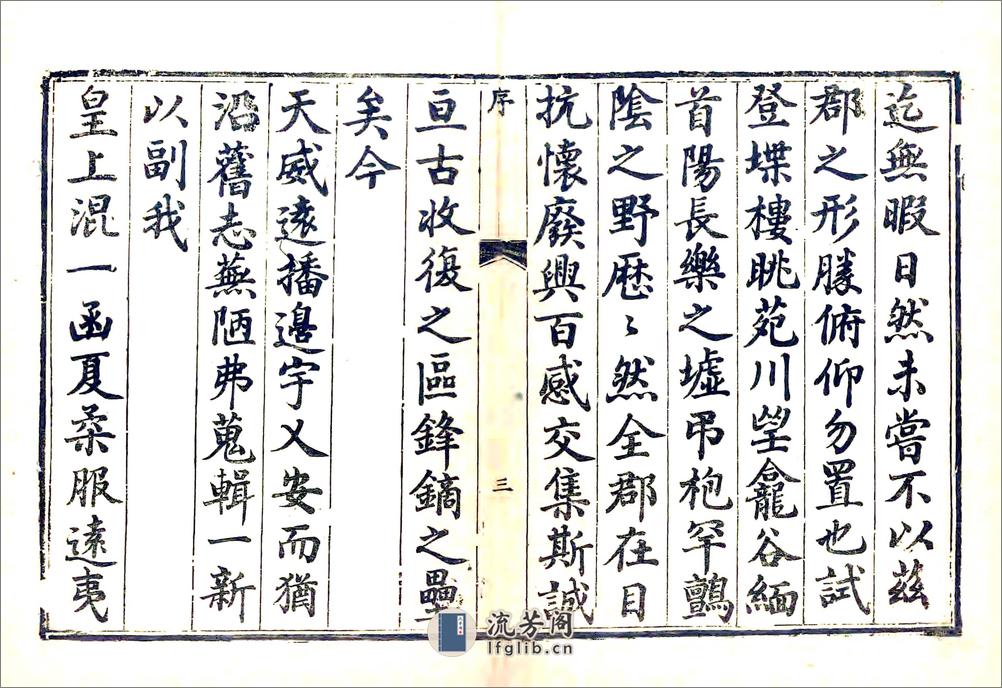 迄無暇日然未嘗不以茲
郡之形勝俯仰勿置也試
登堞樓眺苑川望龕谷緬
首陽長樂之墟弔枹罕鸇
陰之野歷〻然全郡在目
抗懷廢興百感交集斯誠
序
三
亘古收復之區鋒鏑之壘
矣今
天威遠播邊宇乂安而猶
沿舊志蕪陋弗蒐輯一新
以副我
皇上混一函夏柔服遠夷
流芳阁
lfglib.cn